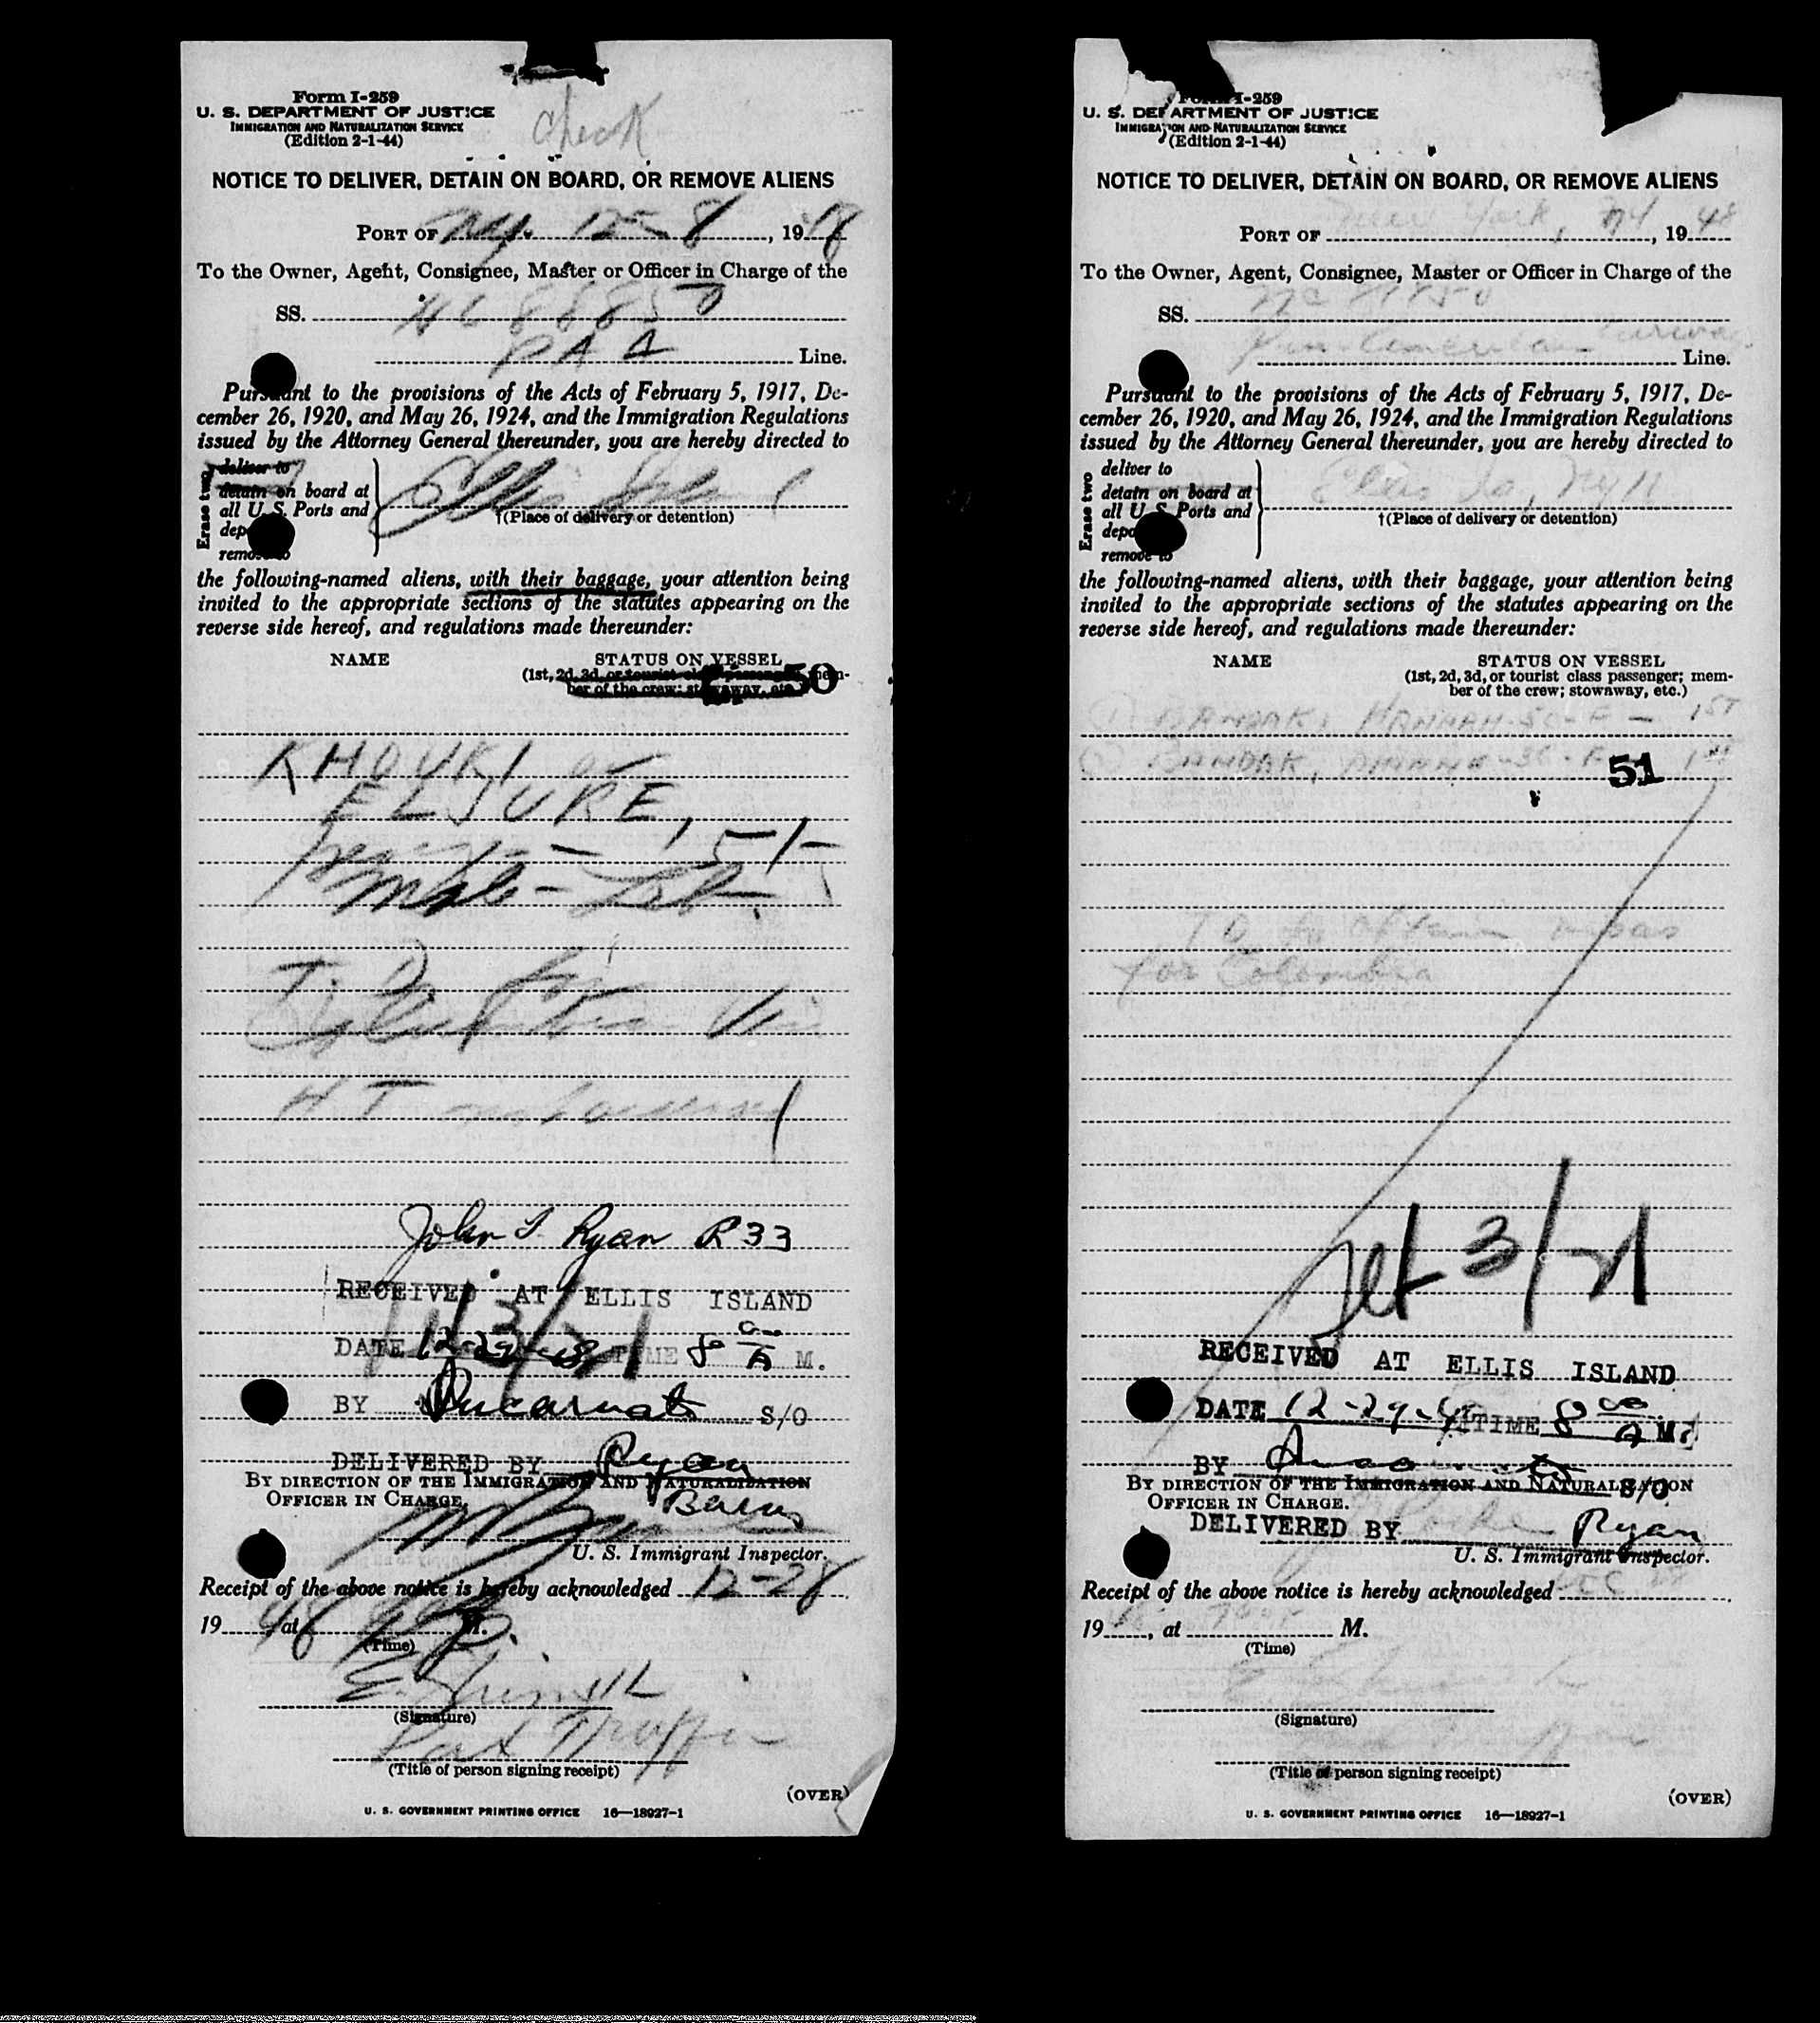 Form I-259
U. S. DEPARTMENT OF JUSTICE
IMMIGRATION AND NATURALIZATION SERVICE
(Edition 2-1-44)
Check
NOTICE TO DELIVER, DETAIN ON BOARD, OR REMOVE ALIENS
PORT OF N.Y. 12-8, 1948
To the Owner, Agent, Consignee, Master or Officer in Charge of the
SS. 88850
PAA Line.
Pursuant to the provisions of the Acts of February 5, 1917, De-
cember 26, 1920, and May 26, 1924, and the Immigration Regulations
issued by the Attorney General thereunder, you are hereby directed to
Erase two
deliver to
detain on board at
all U. S. Ports and
remove to
Ellis Island
†(Place of delivery or detention)
the following-named aliens, with their baggage, your attention being
invited to the appropriate sections of the statutes appearing on the
reverse side hereof, and regulations made thereunder:
NAME STATUS ON VESSEL
(1st, 2d, 3d, or tourist class passenger; mem-
ber of the crew; stowaway, etc.)
50
KHOURI or
ELJURE,
51
Male - Leb.
T. D. for
H T
John J Ryan R33
RECEIVED AT ELLIS ISLAND
DATE 12-29-48 TIME 8 00 A M.
BY S/O
DELIVERED BY Ryan
BY DIRECTION OF THE IMMIGRATION AND NATURALIZATION
OFFICER IN CHARGE.
U. S. Immigrant Inspector.
Receipt of the above notice is hereby acknowledged 12-28
1948, at M.
(Time)
(Signature)
(Title of person signing receipt)
(OVER)
U. S. GOVERNMENT PRINTING OFFICE 16—18927-1
Form I-259
U. S. DEPARTMENT OF JUSTICE
IMMIGRATION AND NATURALIZATION SERVICE
(Edition 2-1-44)
NOTICE TO DELIVER, DETAIN ON BOARD, OR REMOVE ALIENS
PORT OF New York, NY, 1948
To the Owner, Agent, Consignee, Master or Officer in Charge of the
SS.
Pan American Airways Line.
Pursuant to the provisions of the Acts of February 5, 1917, De-
cember 26, 1920, and May 26, 1924, and the Immigration Regulations
issued by the Attorney General thereunder, you are hereby directed to
Erase two
deliver to
detain on board at
all U. S. Ports and
remove to
Ellis Is, NYH
†(Place of delivery or detention)
the following-named aliens, with their baggage, your attention being
invited to the appropriate sections of the statutes appearing on the
reverse side hereof, and regulations made thereunder:
NAME STATUS ON VESSEL
(1st, 2d, 3d, or tourist class passenger; mem-
ber of the crew; stowaway, etc.)
(1) BANDAK, HANNAH-50-F - 1ST
(2) BANDAK, 1ST
51
TD to obtain visas
for Colombia
3/21
RECEIVED AT ELLIS ISLAND
DATE 12-29-48 TIME 8 00 A M.
BY S/O
BY DIRECTION OF THE IMMIGRATION AND NATURALIZATION
OFFICER IN CHARGE.
DELIVERED BY Ryan
U. S. Immigrant Inspector.
Receipt of the above notice is hereby acknowledged Dec 28
19, at M.
(Time)
(Signature)
(Title of person signing receipt)
(OVER)
U. S. GOVERNMENT PRINTING OFFICE 16—18927-1